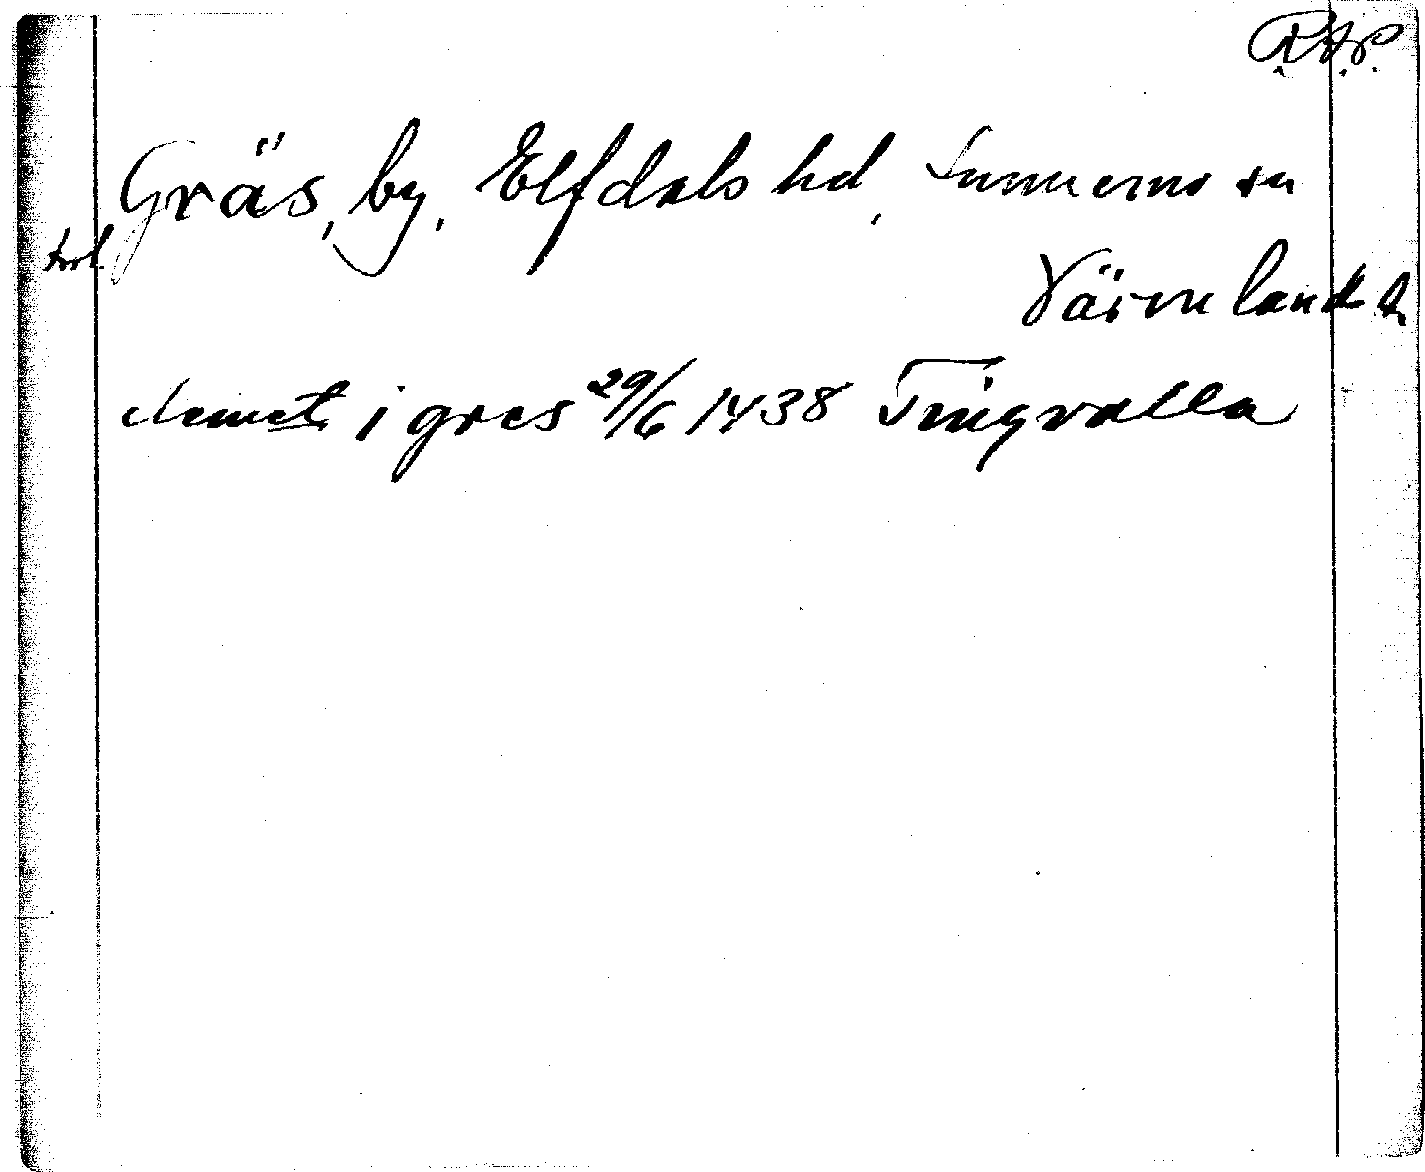 R.A.P.
Gräs, by, Elfdals hd, Sunnemo sn
trol.
Värmlands l.
clemet i gres 29/6 1438 Tingvalla